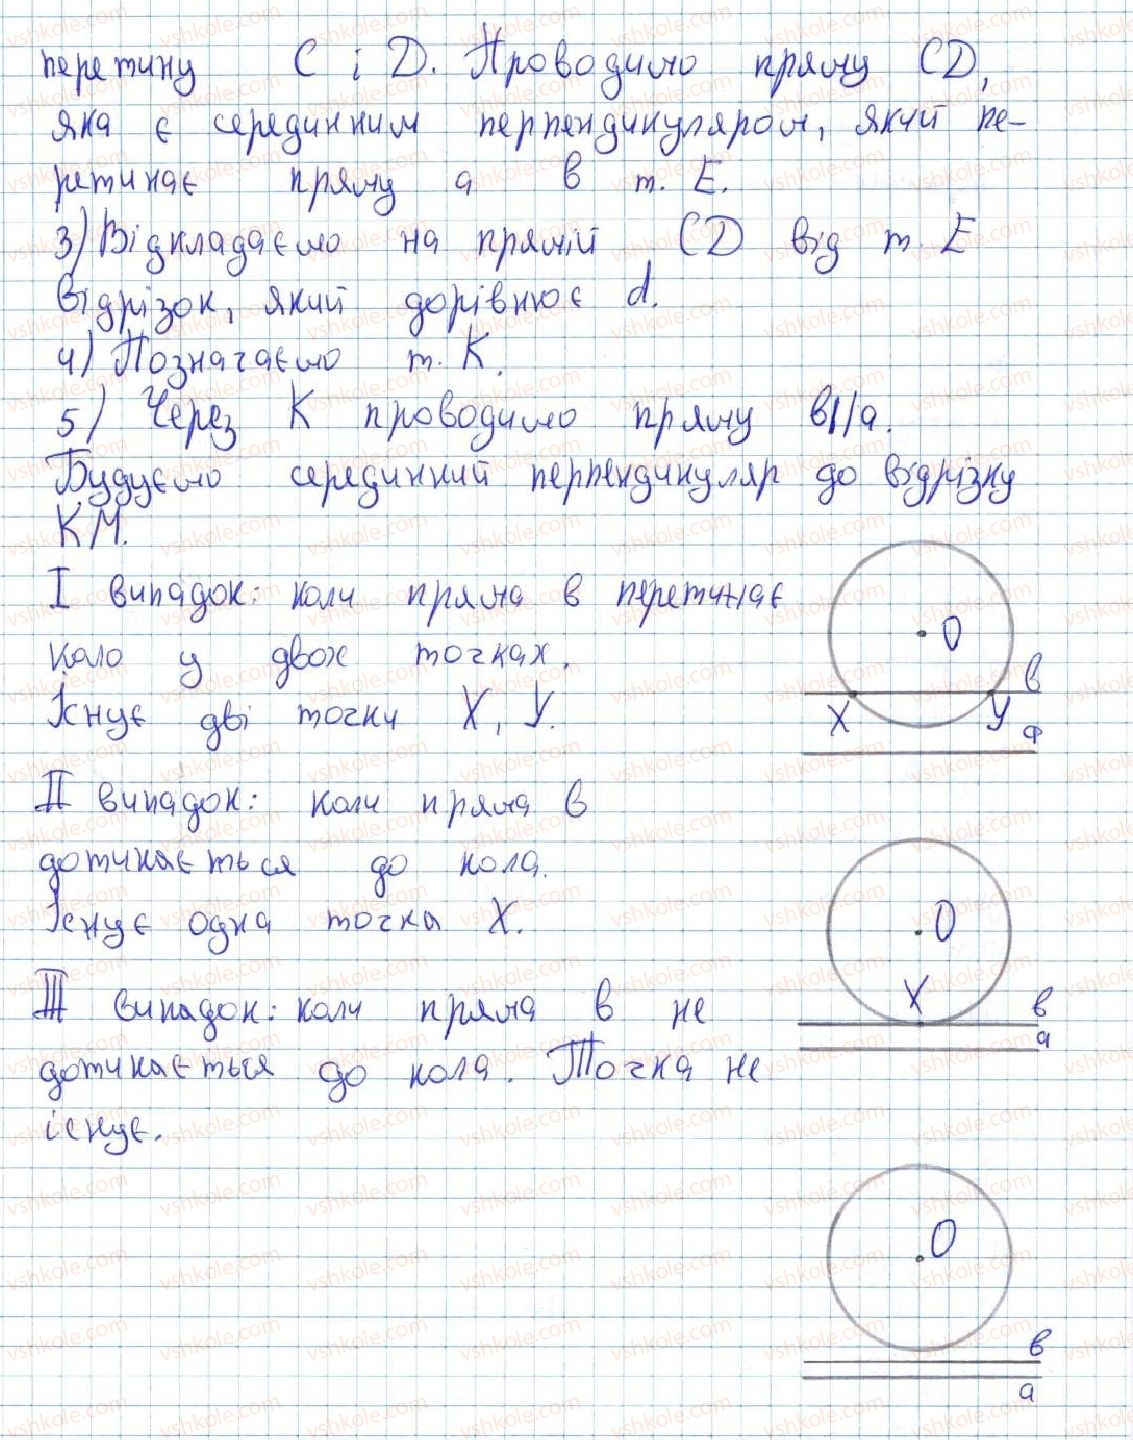 перетину С і D. Проводимо пряму CD,
яка є серединним перпендикуляром, який пе-
ретинає пряму а в т. Е.
3) Відкладаємо на прямій CD від т. Е
відрізок, який дорівнює d.
4) Позначаємо т. К.
5) Через К проводимо пряму в||а.
Будуємо серединний перпендикуляр до відрізку
КМ.
І випадок: коли пряма в перетинає
коло у двох точках.
Існує дві точки X, У.
О
в
X У а
ІІ випадок: коли пряма в
дотикається до кола.
Існує одна точка X.
О
X в
а
ІІІ випадок: коли пряма в не
дотикається до кола. Точка не
існує.
О
в
а
vshkole.com